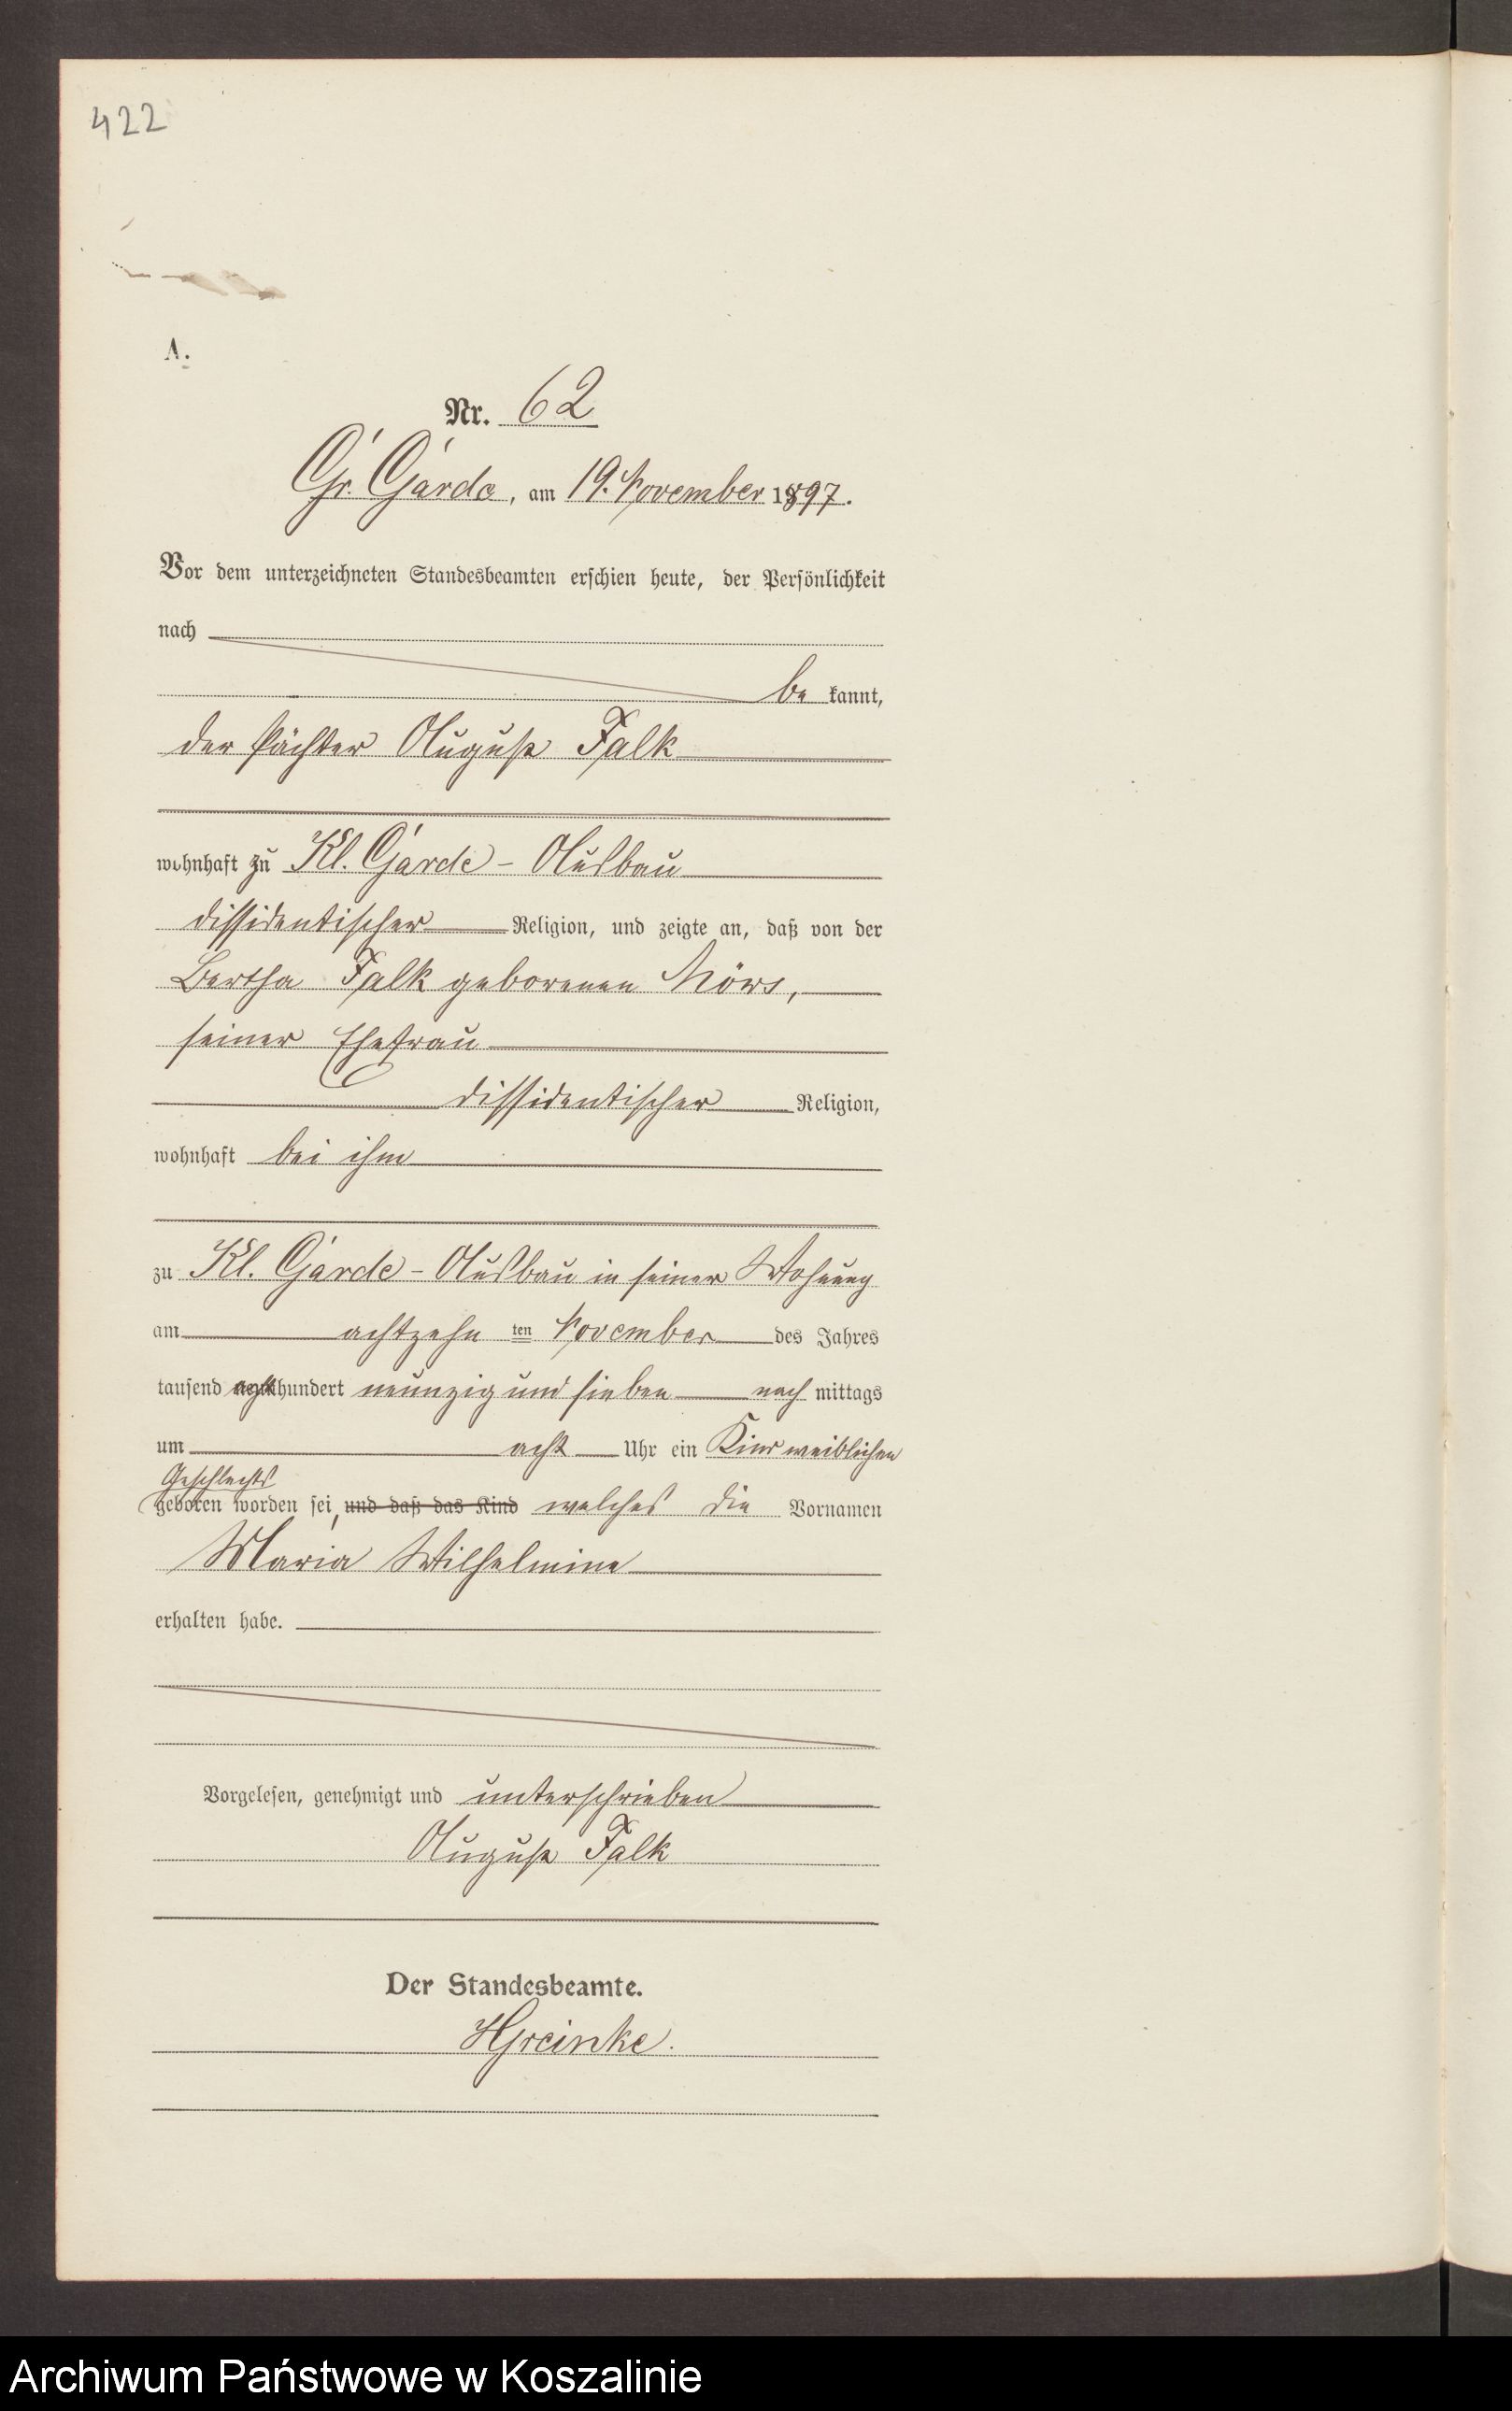 422
A.
Nr. 62
Gr. Garde, am 19. November 1897.
Vor dem unterzeichneten Standesbeamten erschien heute, der Persönlichkeit
nach
be kannt,
der Pächter August Falk
wohnhaft zu Kl. Garde - Ausbau
dissidentischer Religion, und zeigte an, daß von der
Bertha Falk geborenen Mörs,
seiner Ehefrau
dissidentischer Religion,
wohnhaft bei ihm
zu Kl. Garde - Ausbau in seiner Wohnung
am achtzehn ten November des Jahres
tausend achthundert neunzig und sieben nach mittags
um acht Uhr ein Kind weiblichen
Geschlechts
geboren worden sei, und daß das Kind welches die Vornamen
Maria Wilhelmine
erhalten habe.
Vorgelesen, genehmigt und unterschrieben
August Falk
Der Standesbeamte.
Archiwum Państwowe w Koszalinie